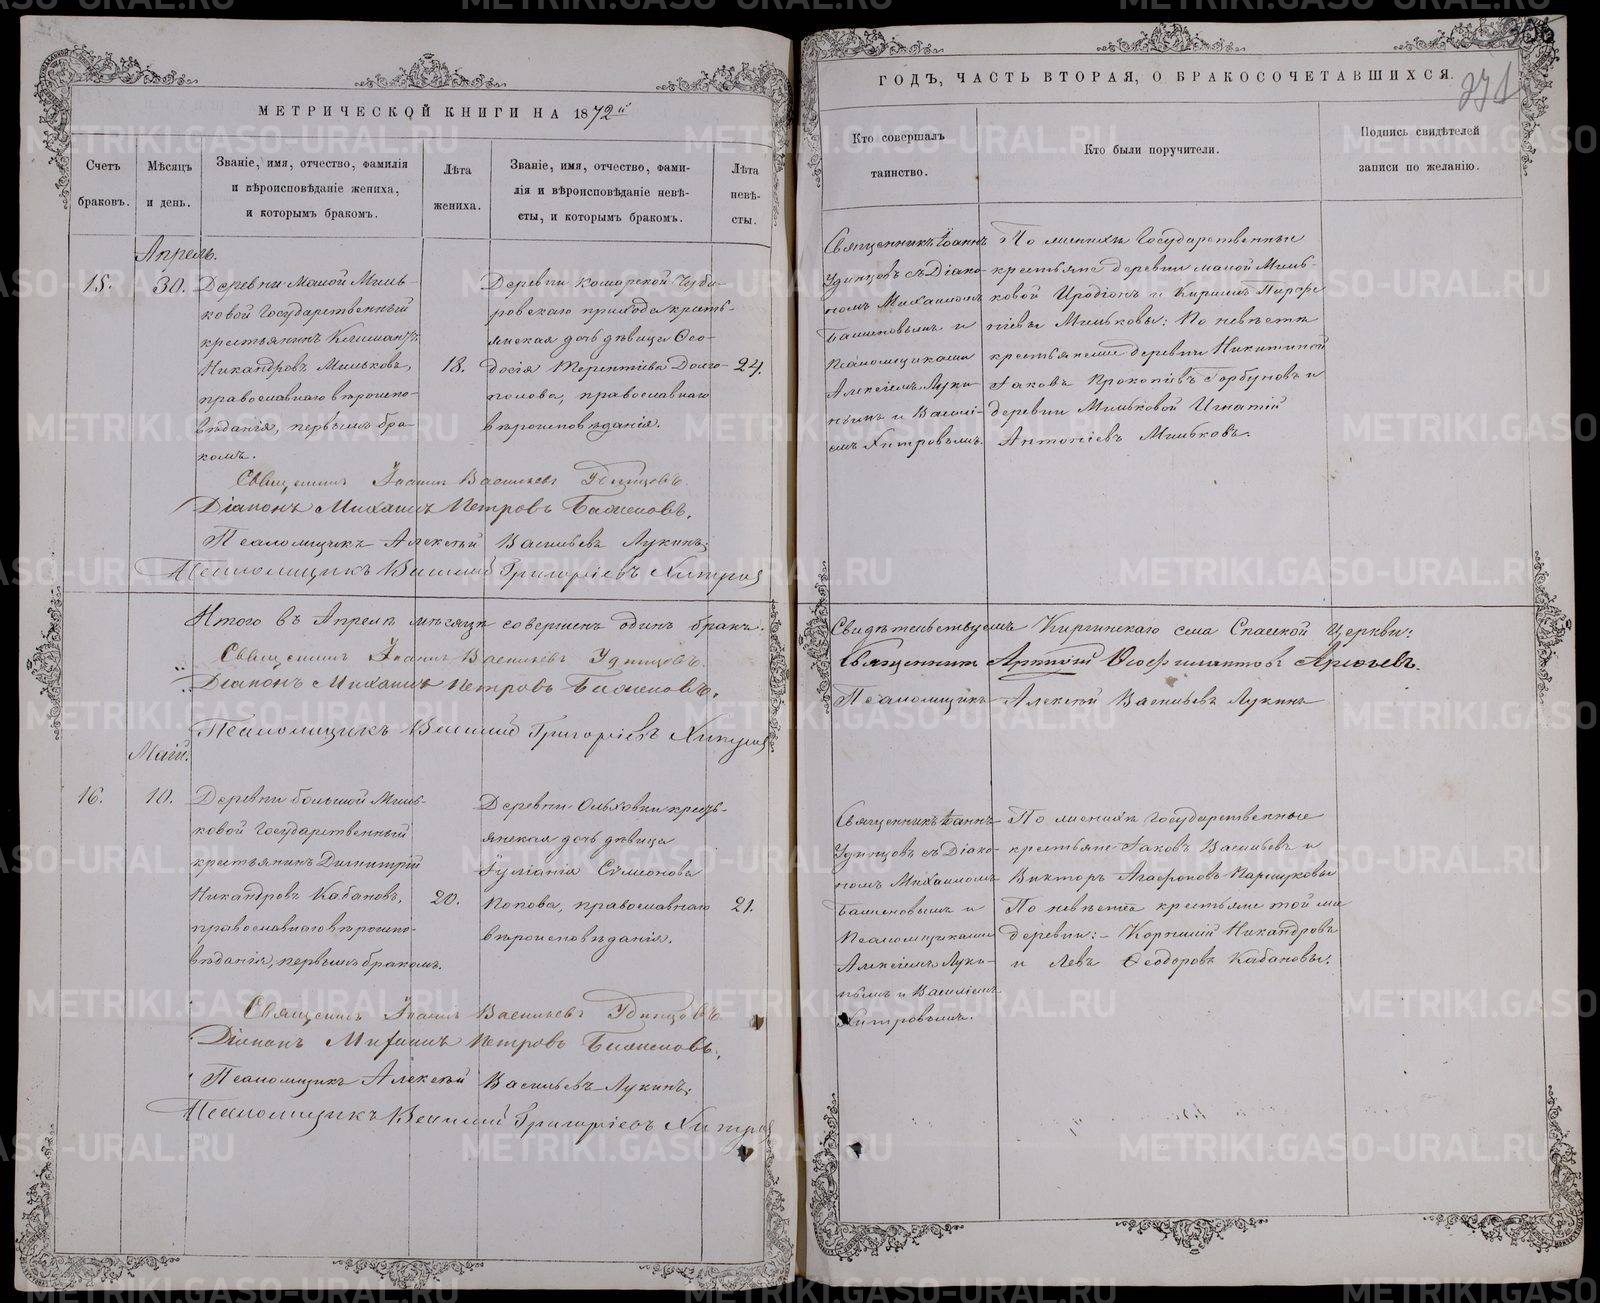 МЕТРИЧЕСКОЙ КНИГИ НА 1872й
Счетъ браковъ.
Мѣсяцъ и день.
Званіе, имя, отчество, фамилія
и вѣроисповѣданіе жениха,
и которымъ бракомъ.
Лѣта жениха.
Званіе, имя, отчество, фами-
лія и вѣроисповѣданіе невѣ-
сты, и которымъ бракомъ.
Лѣта невѣ-
сты.
Апрель.
15.
30.
Деревни малой Миль-
ковой Государственный
крестьянинъ
Никандровъ Мильковъ,
православнаго вѣроиспо-
вѣданія, первымъ бра-
комъ.
18.
Деревни
приходa кресть-
янская дочь дѣвица Ѳео-
досія Терентіева Долго-
полова, православнаго
вѣроисповѣданія.
24.
Священникъ Іоаннъ Васильевъ Удинцовъ.
Діаконъ Михаилъ Петровъ Баженовъ.
Псаломщикъ Алексѣй Васильевъ Лукинъ;
Псаломщикъ Василій Григоріевъ Хитров
Итого въ Апрелѣ мѣсяцѣ совершенъ одинъ бракъ.
Священникъ Іоаннъ Васильевъ Удинцовъ.
Діаконъ Михаилъ Петровъ Баженовъ.
Псаломщикъ Василій Григоріевъ Хитров
Маій.
16.
10.
Деревни большой Миль-
ковой Государственный
крестьянинъ Димитрій
Никандровъ Кабановъ,
православнаго вѣроиспо-
вѣданія, первымъ бракомъ.
20.
Деревни Ольховки кресть-
янская дочь дѣвица
Іуліанія Сѵмеонова
Попова, православнаго
вѣроисповѣданія.
21.
Священникъ Іоаннъ Васильевъ Удинцовъ
Діаконъ Михаилъ Петровъ Баженовъ.
Псаломщикъ Алексѣй Васильевъ Лукинъ;
Псаломщикъ Василій Григоріевъ Хитров
ГОДЪ, ЧАСТЬ ВТОРАЯ, О БРАКОСОЧЕТАВШИХСЯ.
Кто совершалъ
таинство.
Кто были поручители.
Подпись свидѣтелей
записи по желанію.
Священникъ Іоаннъ
Удинцовъ съ Діако-
номъ Михаиломъ
Баженовымъ и
Псаломщиками
Алексіемъ Луки-
нымъ и Василі-
емъ Хитровымъ.
По женихѣ Государственные
крестьяне деревни малой Миль-
ковой Иродіонъ и Кириллъ Парфе
ніевы Мильковы: По невѣстѣ
крестьяне деревни Никитиной
Іаковъ Прокопіевъ Горбуновъ и
деревни Мильковой Игнатій
Антоніевъ Мильковъ.
Свидѣтельствуемъ Киргинскаго села Спасской Церкви:
Священникъ Ѳеофилактовъ
Псаломщикъ Алексѣй Васильевъ Лукинъ
Священникъ Іоаннъ
Удинцовъ съ Діако-
номъ Михаиломъ
Баженовымъ и
Псаломщиками
Алексіемъ Луки-
нымъ и Василіемъ
Хитровымъ.
По женихѣ Государственные
крестьяне Іаковъ Васильевъ и
Викторъ Агафоновъ Паршуковы
По невѣстѣ крестьяне той же
деревни:– Корнилій Никандровъ
и Левъ Ѳеодоровъ Кабановы.
METRIKI.GASO-URAL.RU